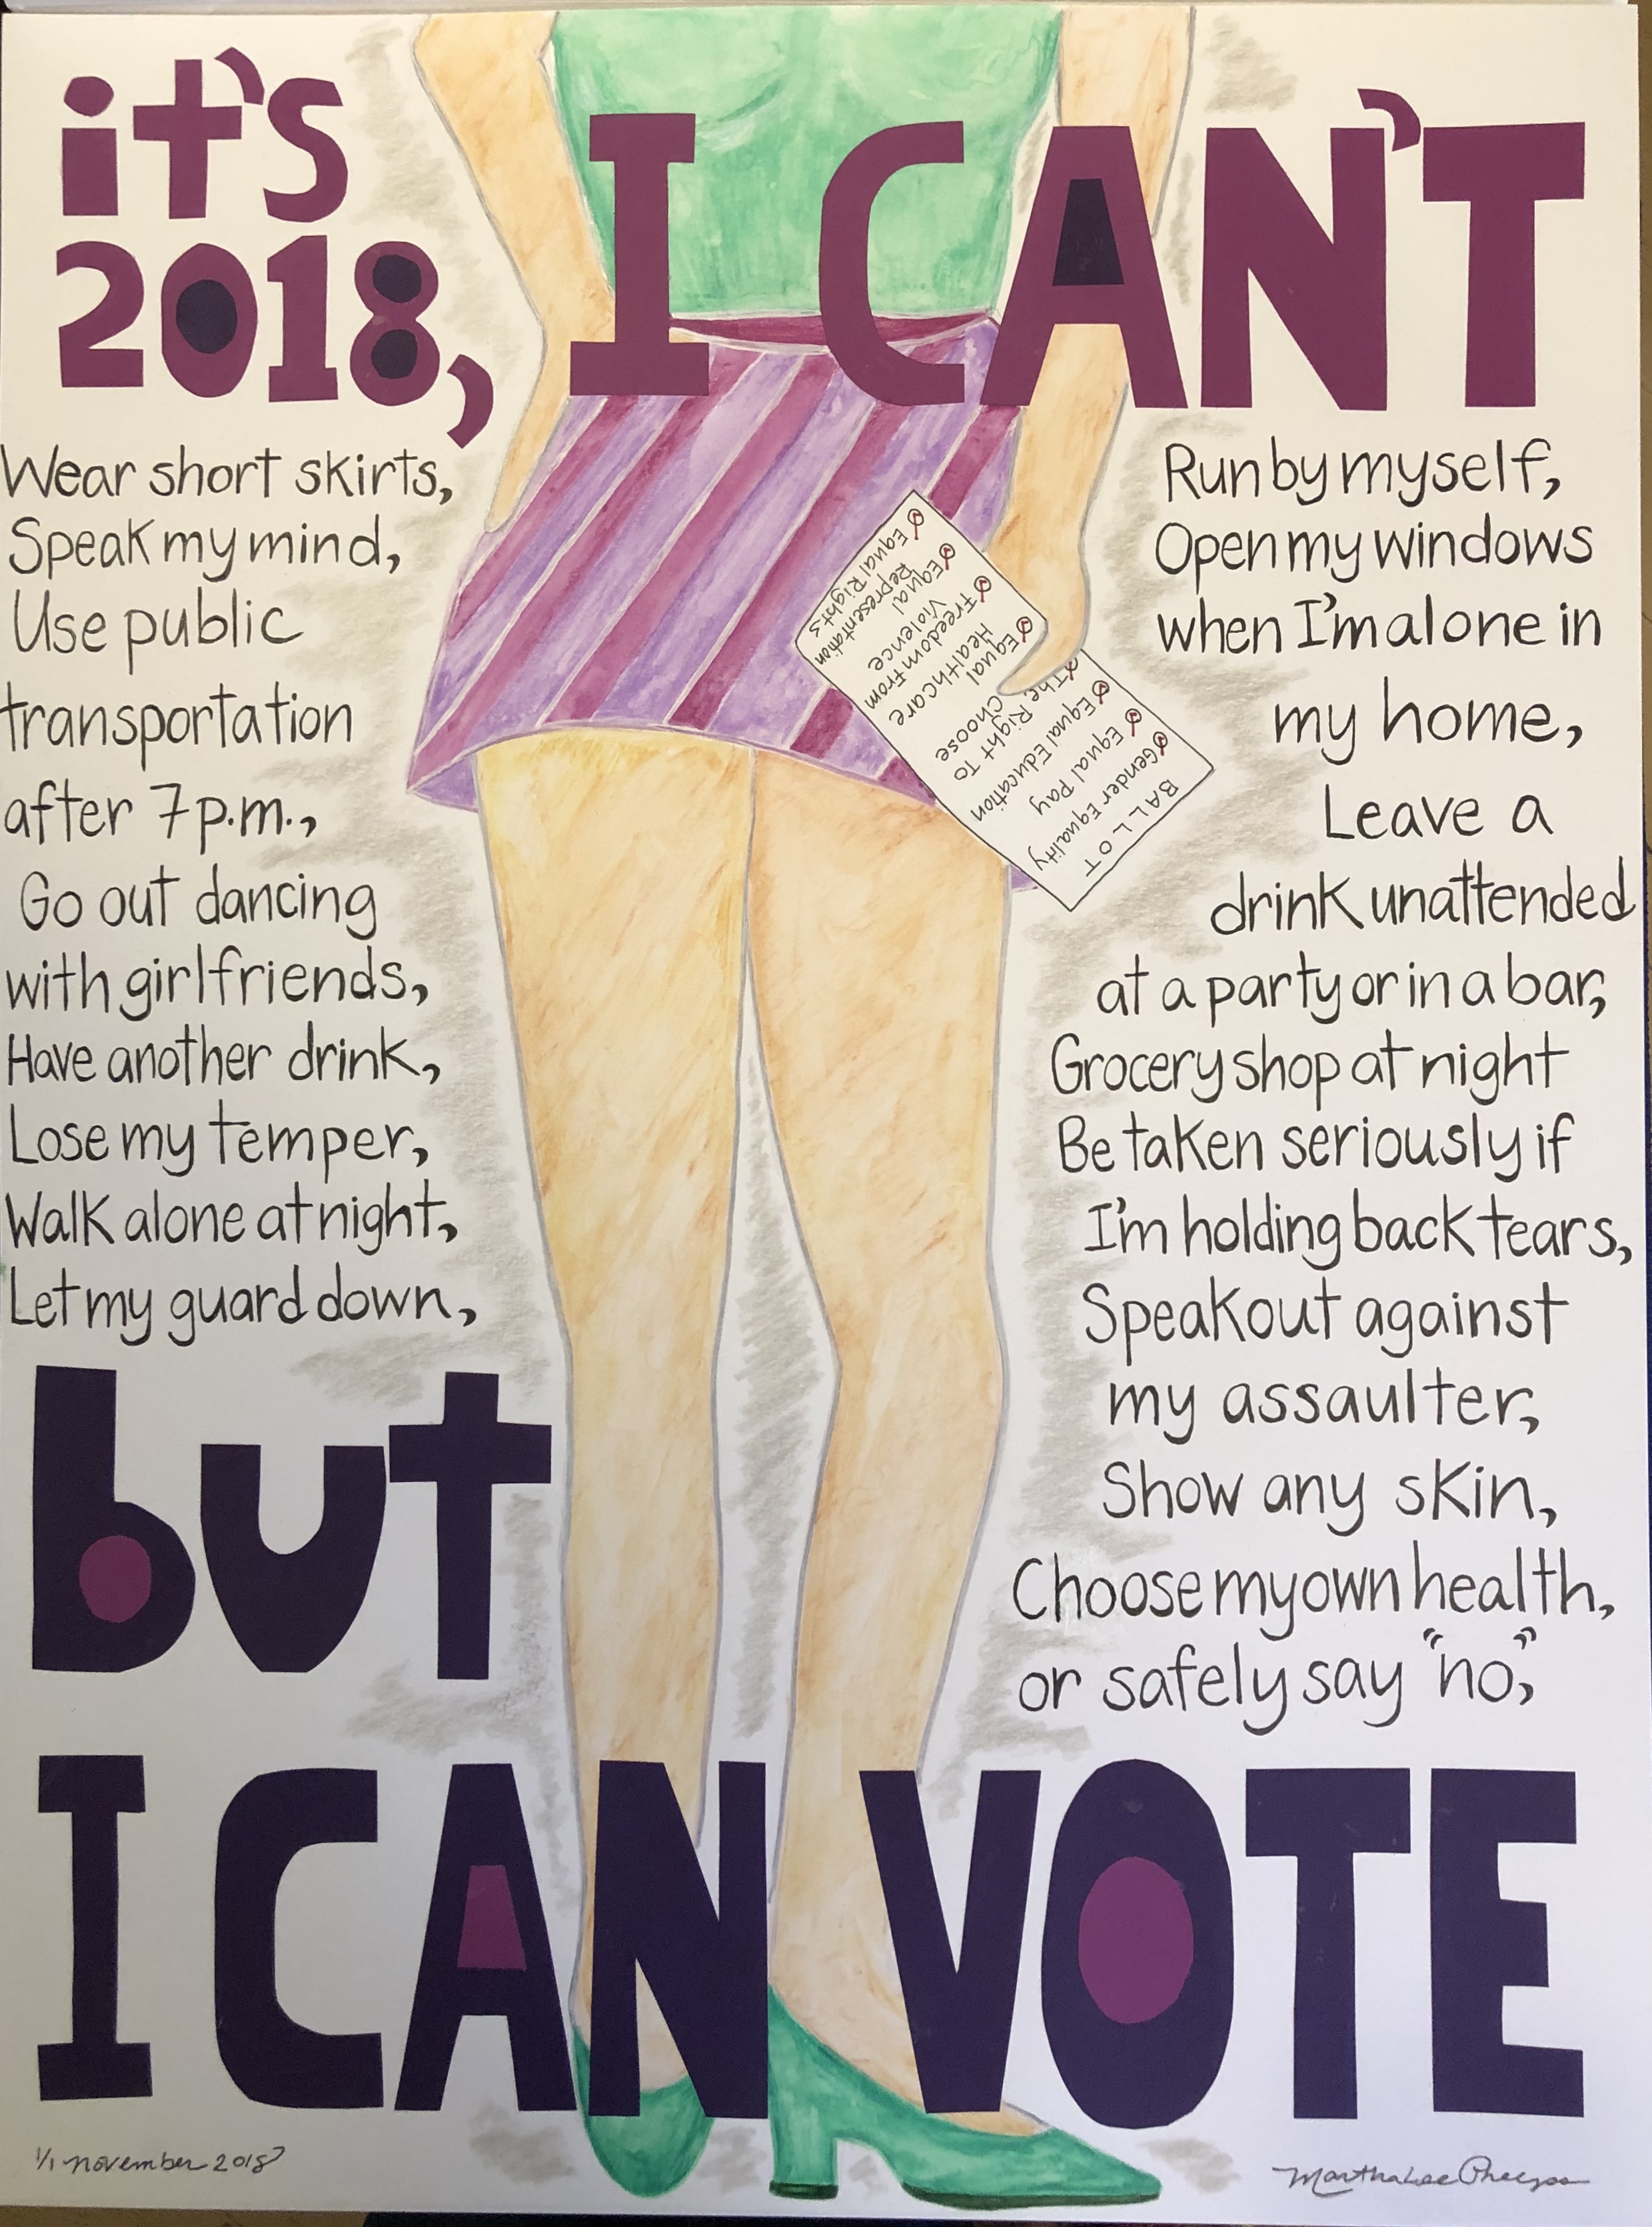 it's
2018,
I CAN'T
Wear short skirts,
Speak my mind,
Use public
transportation
after 7p.m.,
Go out dancing
with girlfriends,
Have another drink,
Lose my temper,
Walk alone at night,
Let my guard down,
Run by myself,
Open my windows
when I'm alone in
my home,
Leave a
drink unattended
at a party or in a bar,
Grocery shop at night
Be taken seriously if
I'm holding back tears,
Speak out against
my assaulter,
Show any skin,
Choose my own health,
or safely say "no",
BALLOT
Gender Equality
Equal Pay
Equal Education
The Right To
Choose
Equal
Healthcare
Freedom From
Violence
Equal
Representation
Equal Rights
but
I CAN VOTE
1/1 november 2018
Martha Lee Phelps